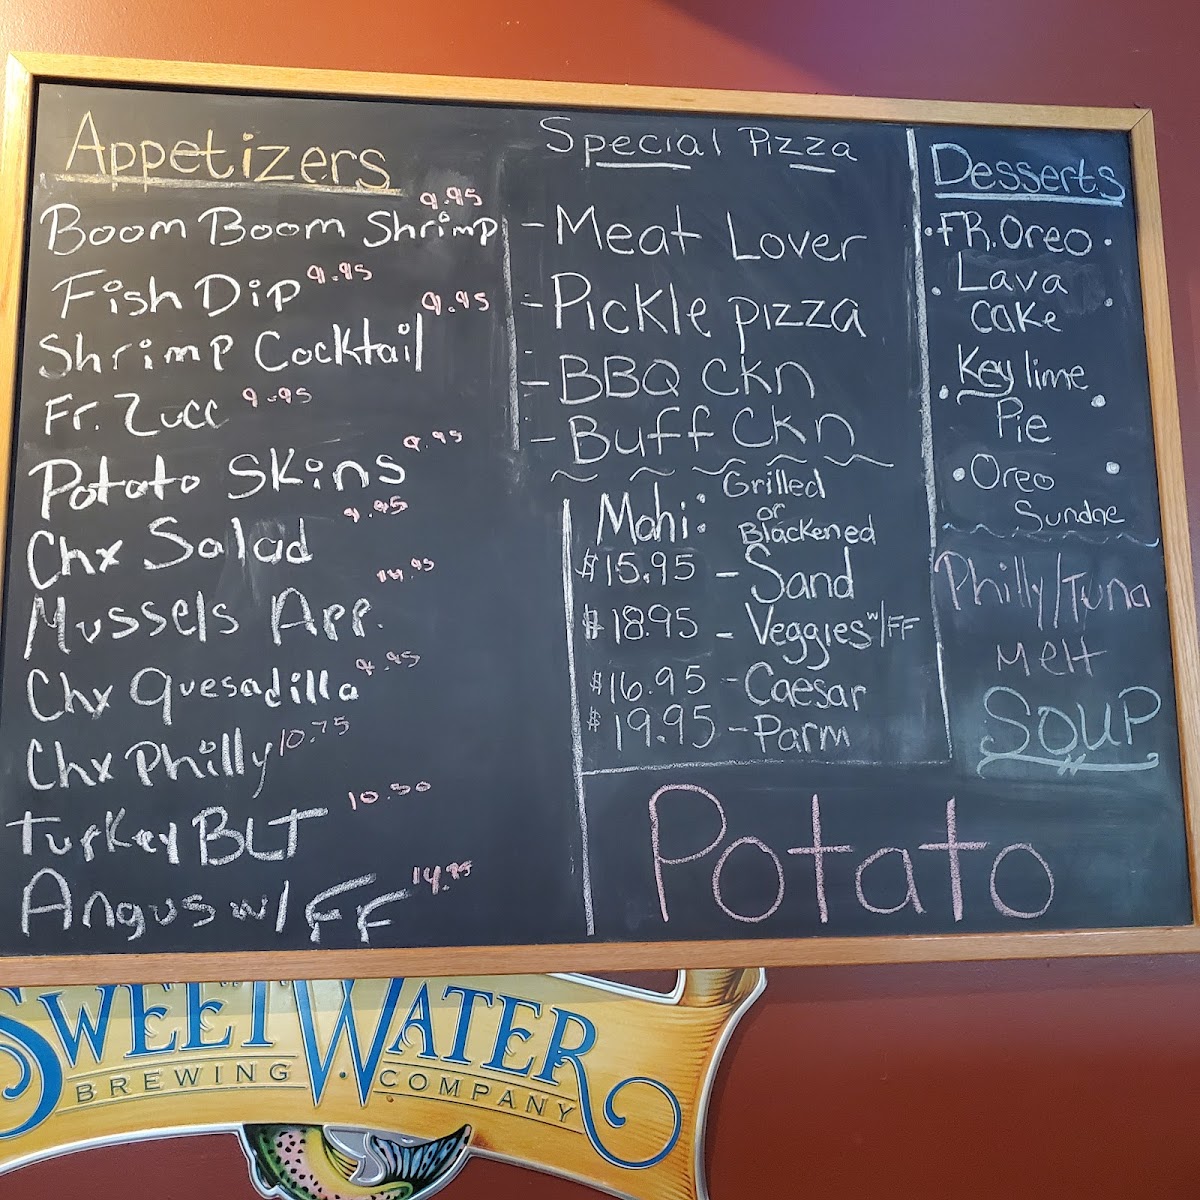 Appetizers
9.95
Boom Boom Shrimp
Fish Dip 9.95
9.95
Shrimp Cocktail
Fr. Zucc 9.95
Potato Skins 9.95
Chx Salad 9.95
Mussels App.
Chx Quesadilla 9.95
Chx Philly 10.75
Turkey BLT 10.50
Angus w/ FF 14.95
Special Pizza
- Meat Lover
- Pickle pizza
- BBQ Ckn
- Buff Ckn
Mahi: Grilled
or
Blackened
$15.95 - Sand
$18.95 - Veggies w/FF
$16.95 - Caesar
$19.95 - Parm
Desserts
· FR. Oreo ·
· Lava
cake ·
· Key lime
Pie ·
· Oreo ·
Sundae
Philly/Tuna
Melt
SOUP
Potato
SWEETWATER
BREWING COMPANY